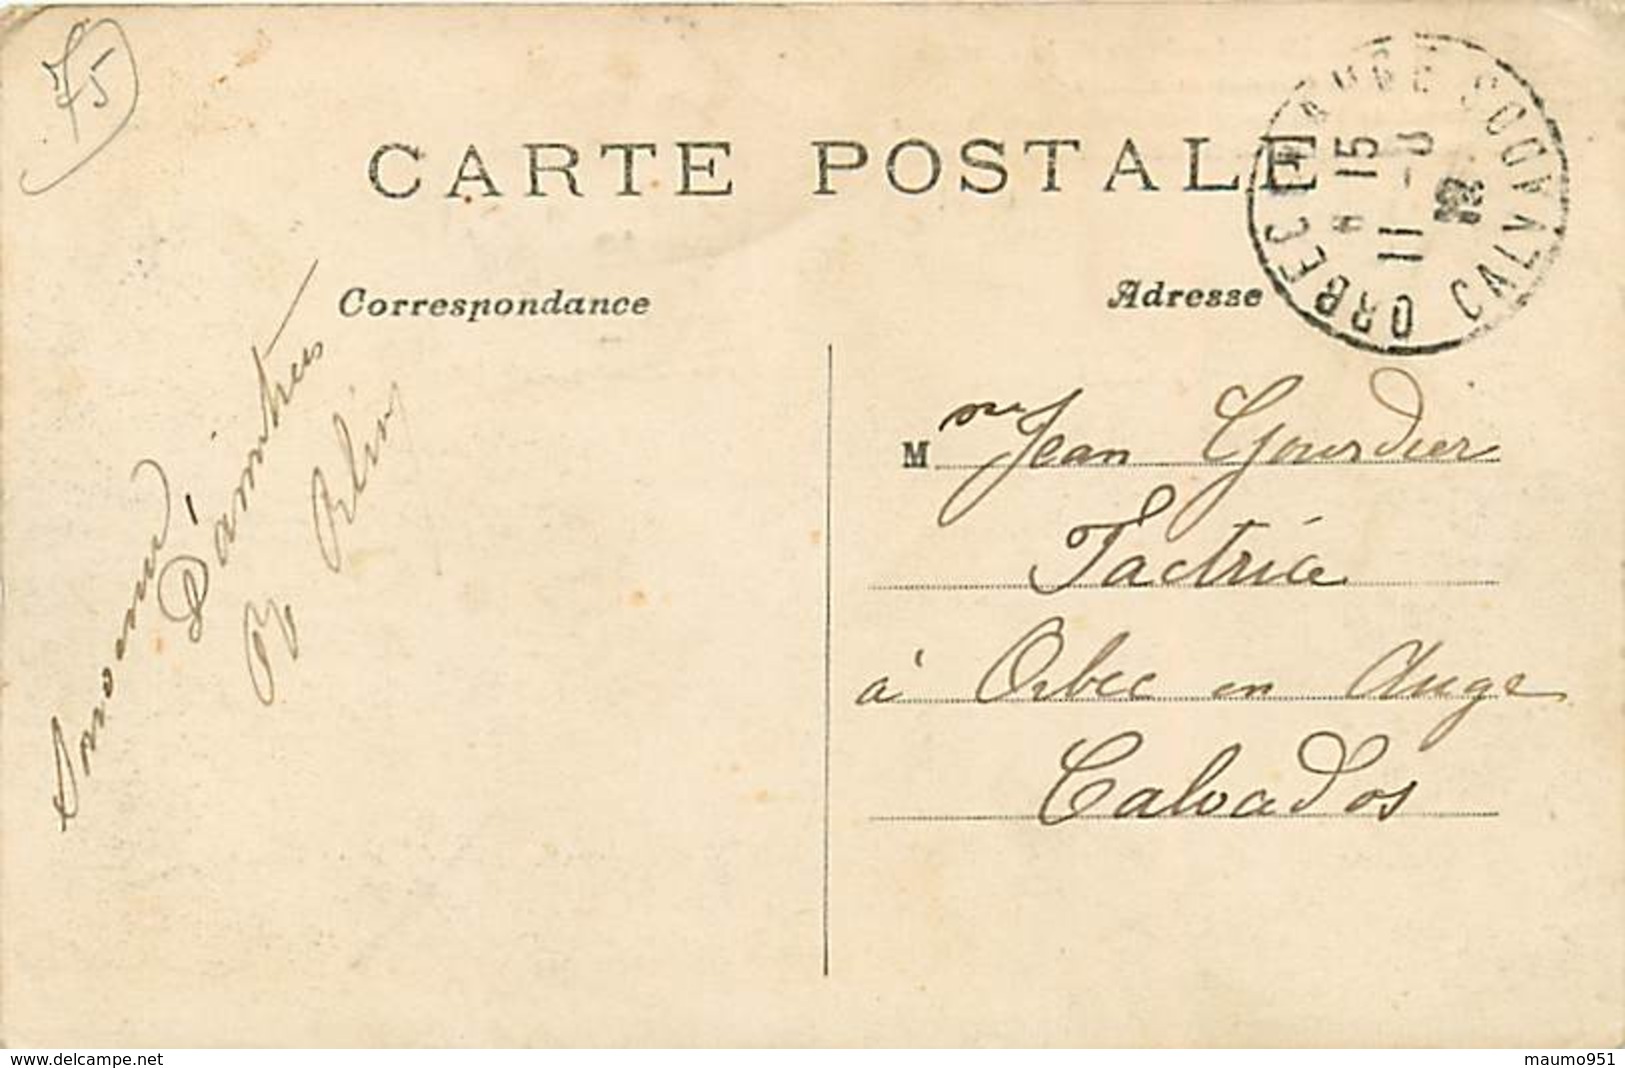 75
CARTE POSTALE
Correspondance
Adresse
ORBEC EN AUGE CALVADOS
15
11
Souvenir
D'amitiés
Mme Jean Gourdier
Factrice
à Orbec en Auge
Calvados
www.delcampe.net
maumo951